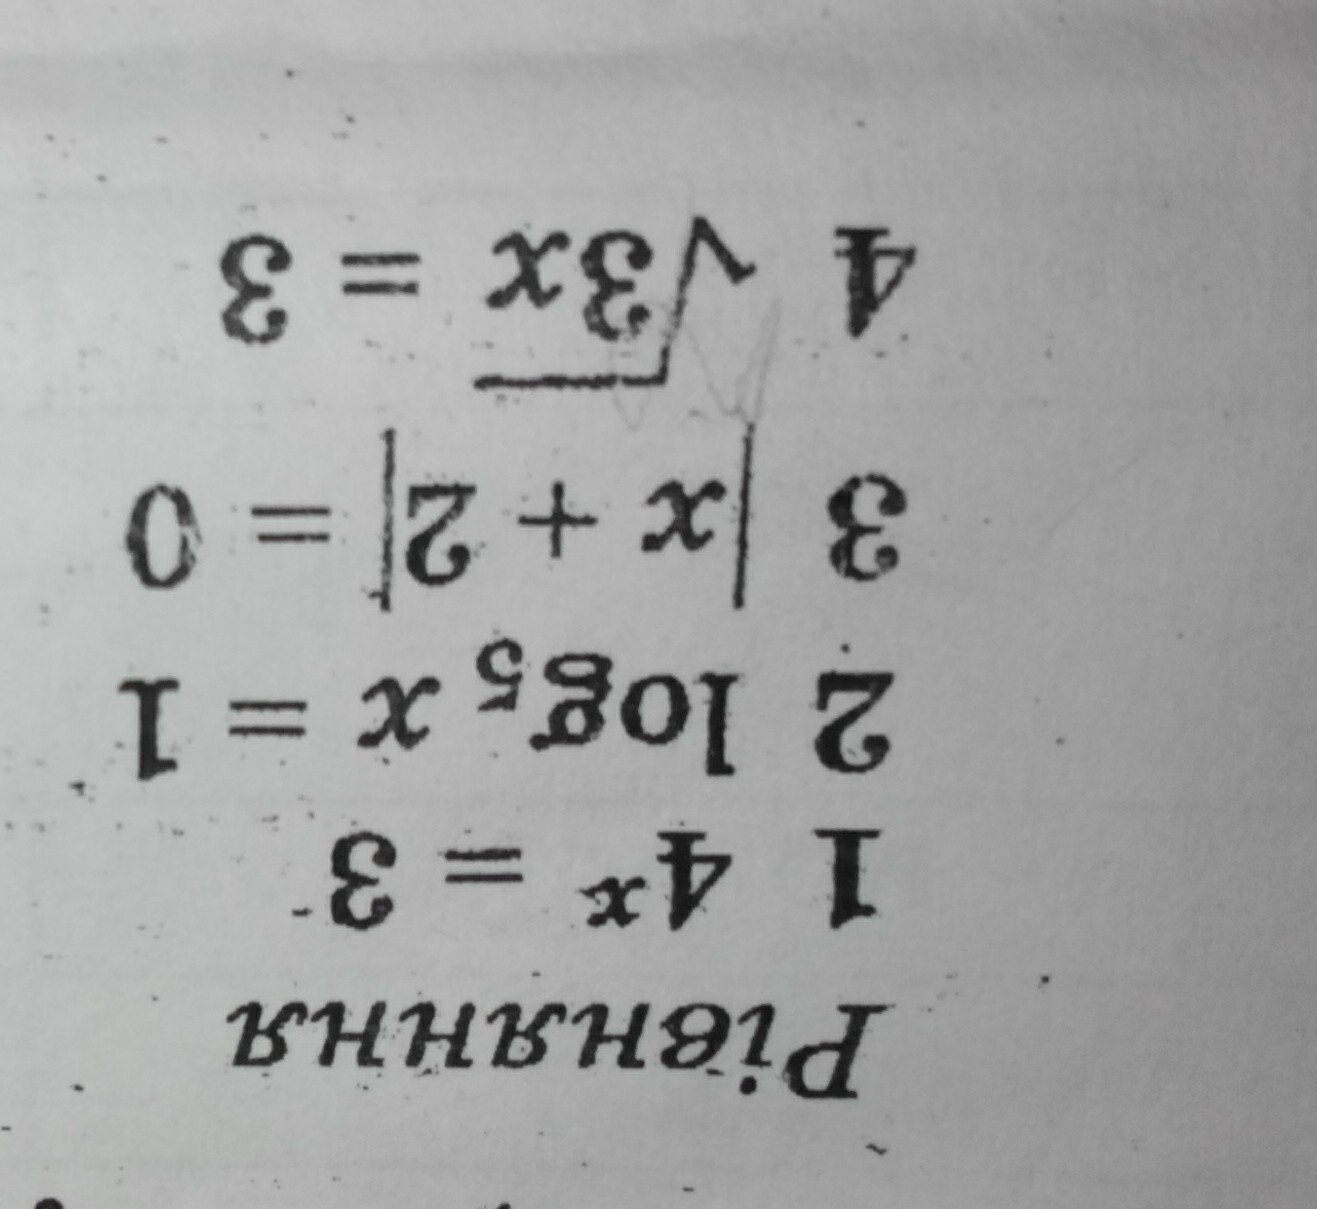 Рівняння
1 4ˣ = 3
2 log₅ x = 1
3 |x + 2| = 0
4 √3x = 3